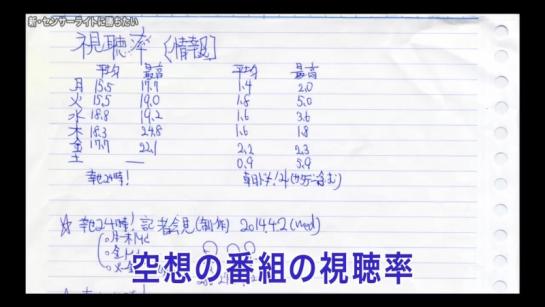 新・センサーライトに勝ちたい
視聴率 [情報]
平均 最高 平均 最高
月 15.5 17.9 1.4 2.0
火 15.5 19.0 1.8 5.0
水 18.8 19.2 1.6 3.6
木 18.3 24.8 1.6 1.8
金 17.7 22.1 2.2 2.3
土 — 0.9 5.9
幸せ24時!
☆ 幸せ24時! 記者会見(制作) 2014.4.2 (wed)
空想の番組の視聴率